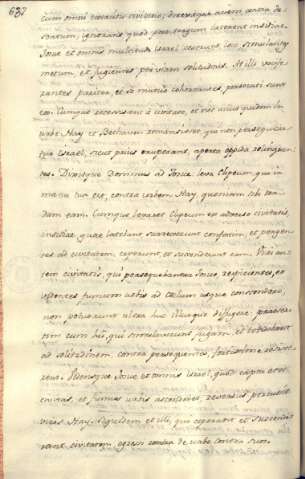 637
cum omni exercitu civitatis, direxitque aciem contra de-
sertum, ignorans quod post tergum laterent insidiae.
Josue et omnis multitudo Israel cesserunt loco simulantes
metum, et fugientes per viam solitudinis. At illi vocife-
rantes pariter, et se mutuo cohortantes, persecuti sunt
eos. Cumque recessissent a civitate, et ne unus quidem in
urbe Hay et Bethaven remansisset, qui non persequere-
tur Israel, sicut eruperant, aperta oppida relinquen-
tes. Dixitque Dominus ad Josue leva clypeum, qui in
manu tua est, contra urbem Hay, quoniam tibi tra-
dam eam. Cumque levasset clypeum ex adverso civitatis,
insidiae quae latebant surrexerunt confestim, et pergen-
tes ad civitatem, ceperunt, et succenderunt eam. Viri au-
tem civitatis, qui persequebantur Josue, respicientes, et
videntes fumum urbis ad coelum usque conscendere,
non potuerunt ultra huc illucque diffugere, praeser-
tim cum hi, qui simulaverant fugam, et tendebant
ad solitudinem contra persequentes, fortissime restitis-
sent. Vidensque Josue et omnis Israel, quod capta esset
civitas, et fumus urbis ascenderet, reversus, percussit
viros Hay. Siquidem et illi, qui ceperant et succende-
rant civitatem, egressi ex urbe contra suos